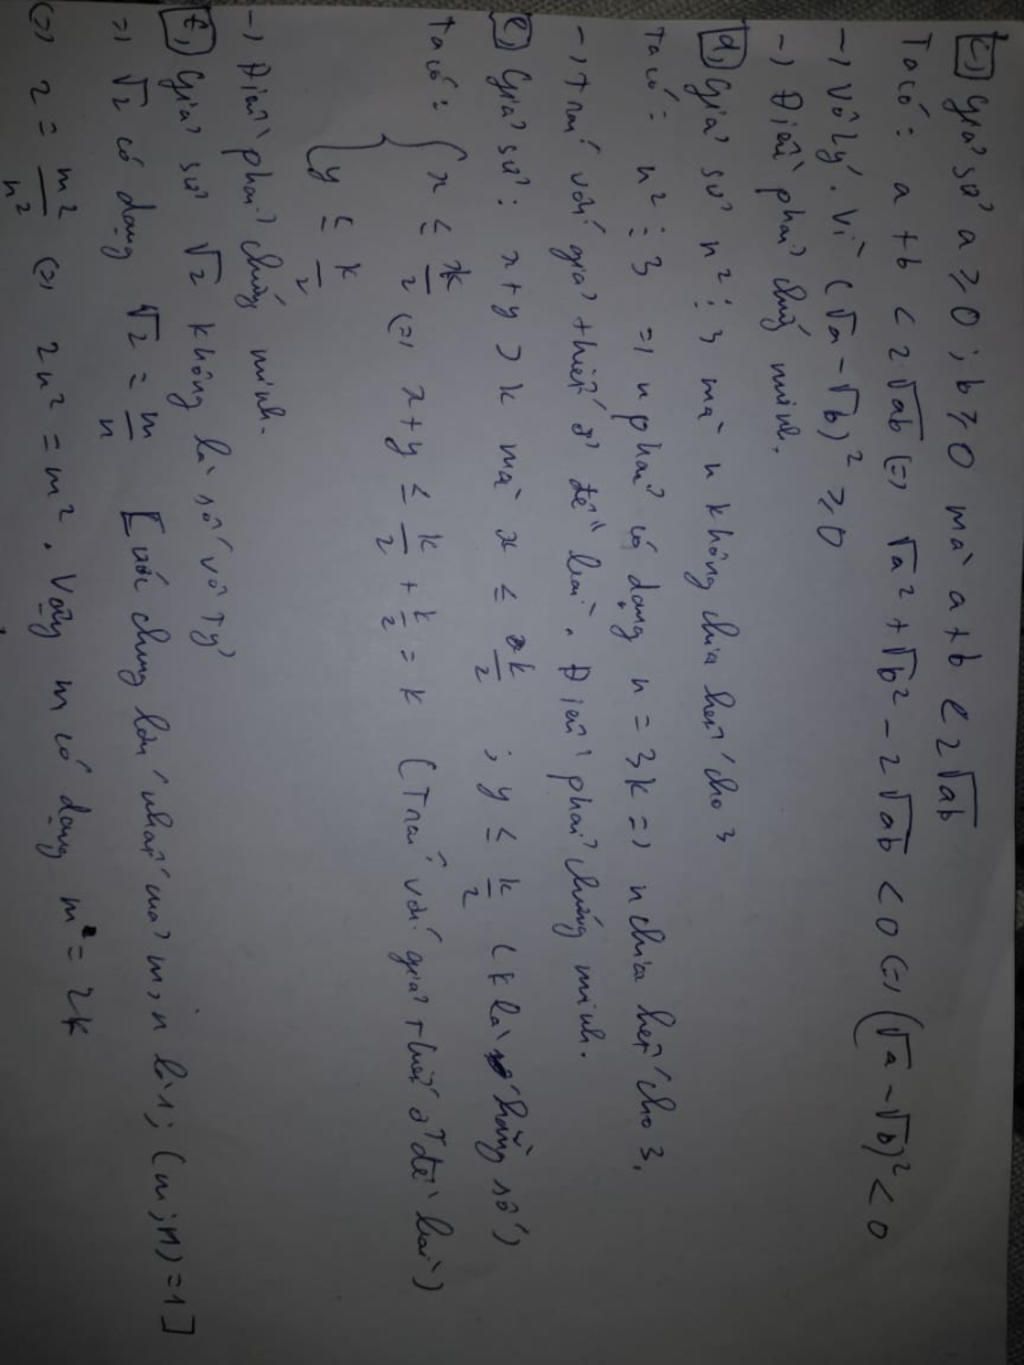 c, Giả sử a ≥ 0 ; b ≥ 0 mà a+b < 2√ab
Ta có : a + b < 2√ab (=) √a² + √b² - 2√ab < 0 (=) (√a - √b)² < 0
-) Vô lý. Vì (√a - √b)² ≥ 0
-) Điều phải chứng minh.
d, Giả sử n² ⋮ 3 mà n không chia hết cho 3
Ta có : n² ⋮ 3 =) n phải có dạng n = 3k =) n chia hết cho 3.
-) trái với giả thiết ở đề bài. Điều phải chứng minh.
e, Giả sử : x+y > k mà x ≤ k/2 ; y ≤ k/2 (k là hằng số)
Ta có : { x ≤ k/2 (=) x+y ≤ k/2 + k/2 = k (Trái với giả thiết ở đề bài)
y ≤ k/2
-) Điều phải chứng minh.
f, Giả sử √2 không là số vô tỷ
=) √2 có dạng √2 = m/n [ước chung lớn nhất của m, n là 1 ; (m ; n) = 1]
(=) 2 = m²/n² (=) 2n² = m². Vậy m có dạng m = 2k